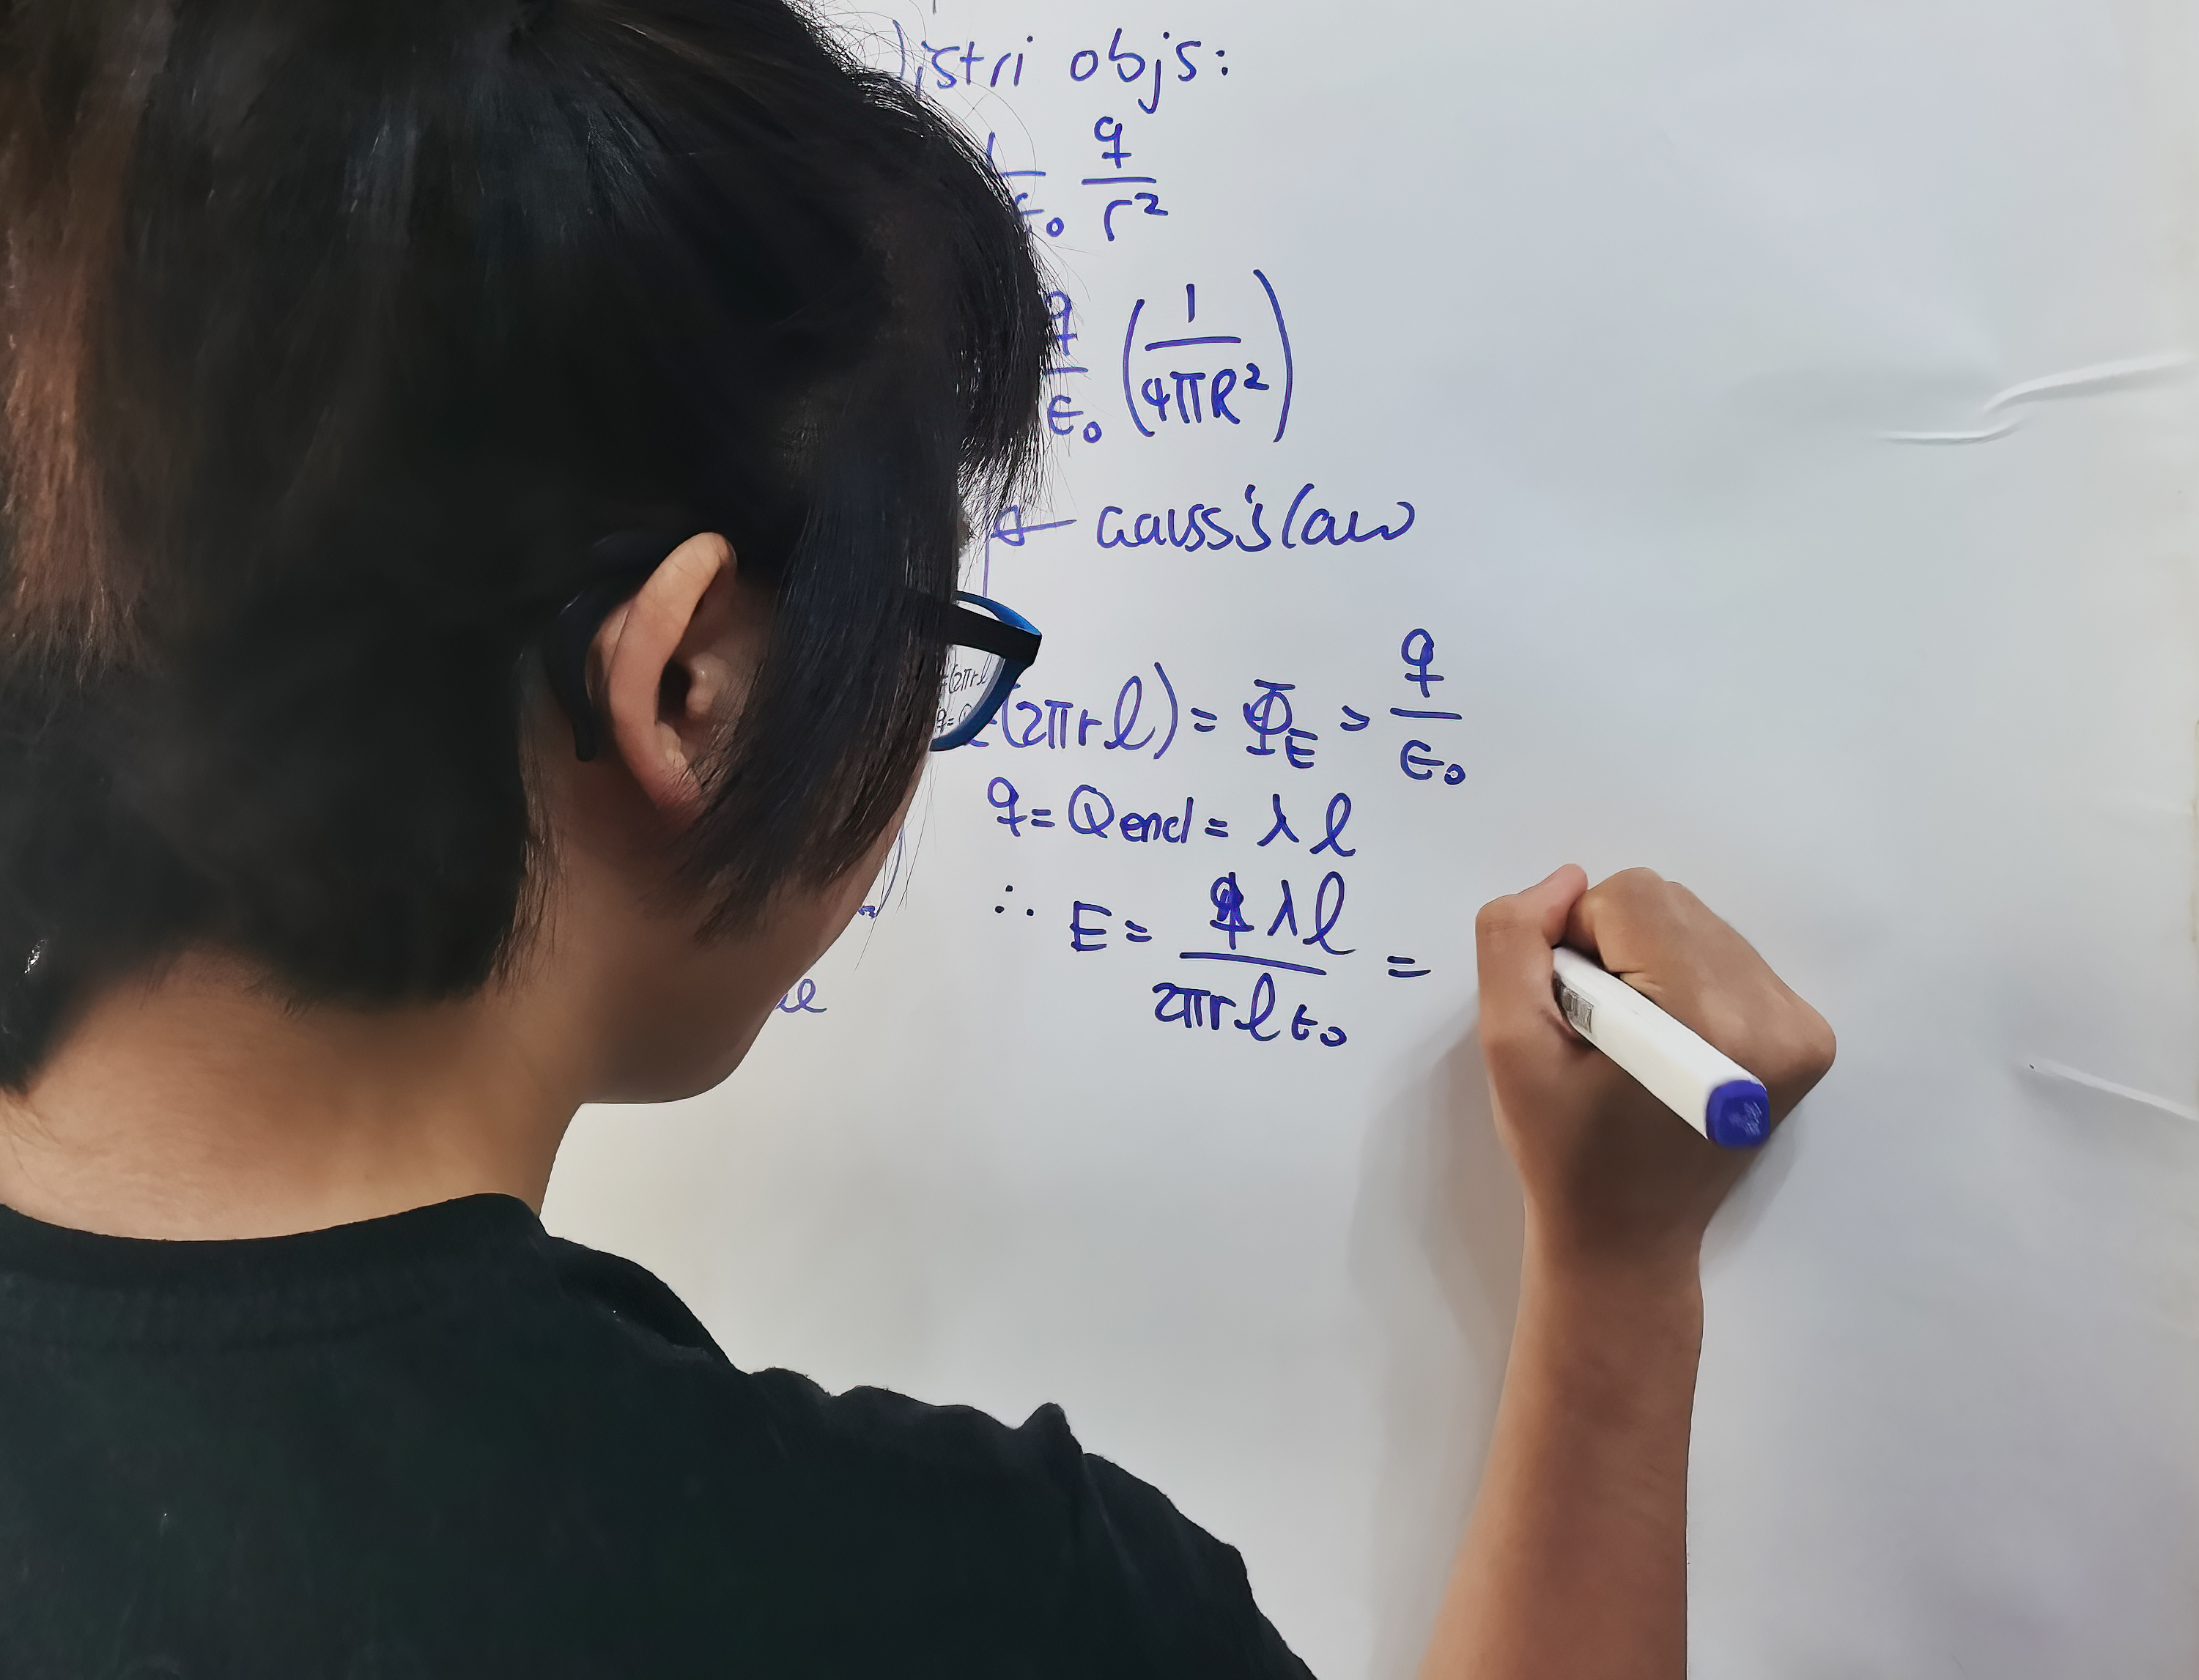 istri objs:
q/r²
q/ε₀ (1/4πR²)
← Gauss's law
(2πrl) = Φ_E = q/ε₀
q = Qencl = λl
∴ E = λl/2πrlε₀ =